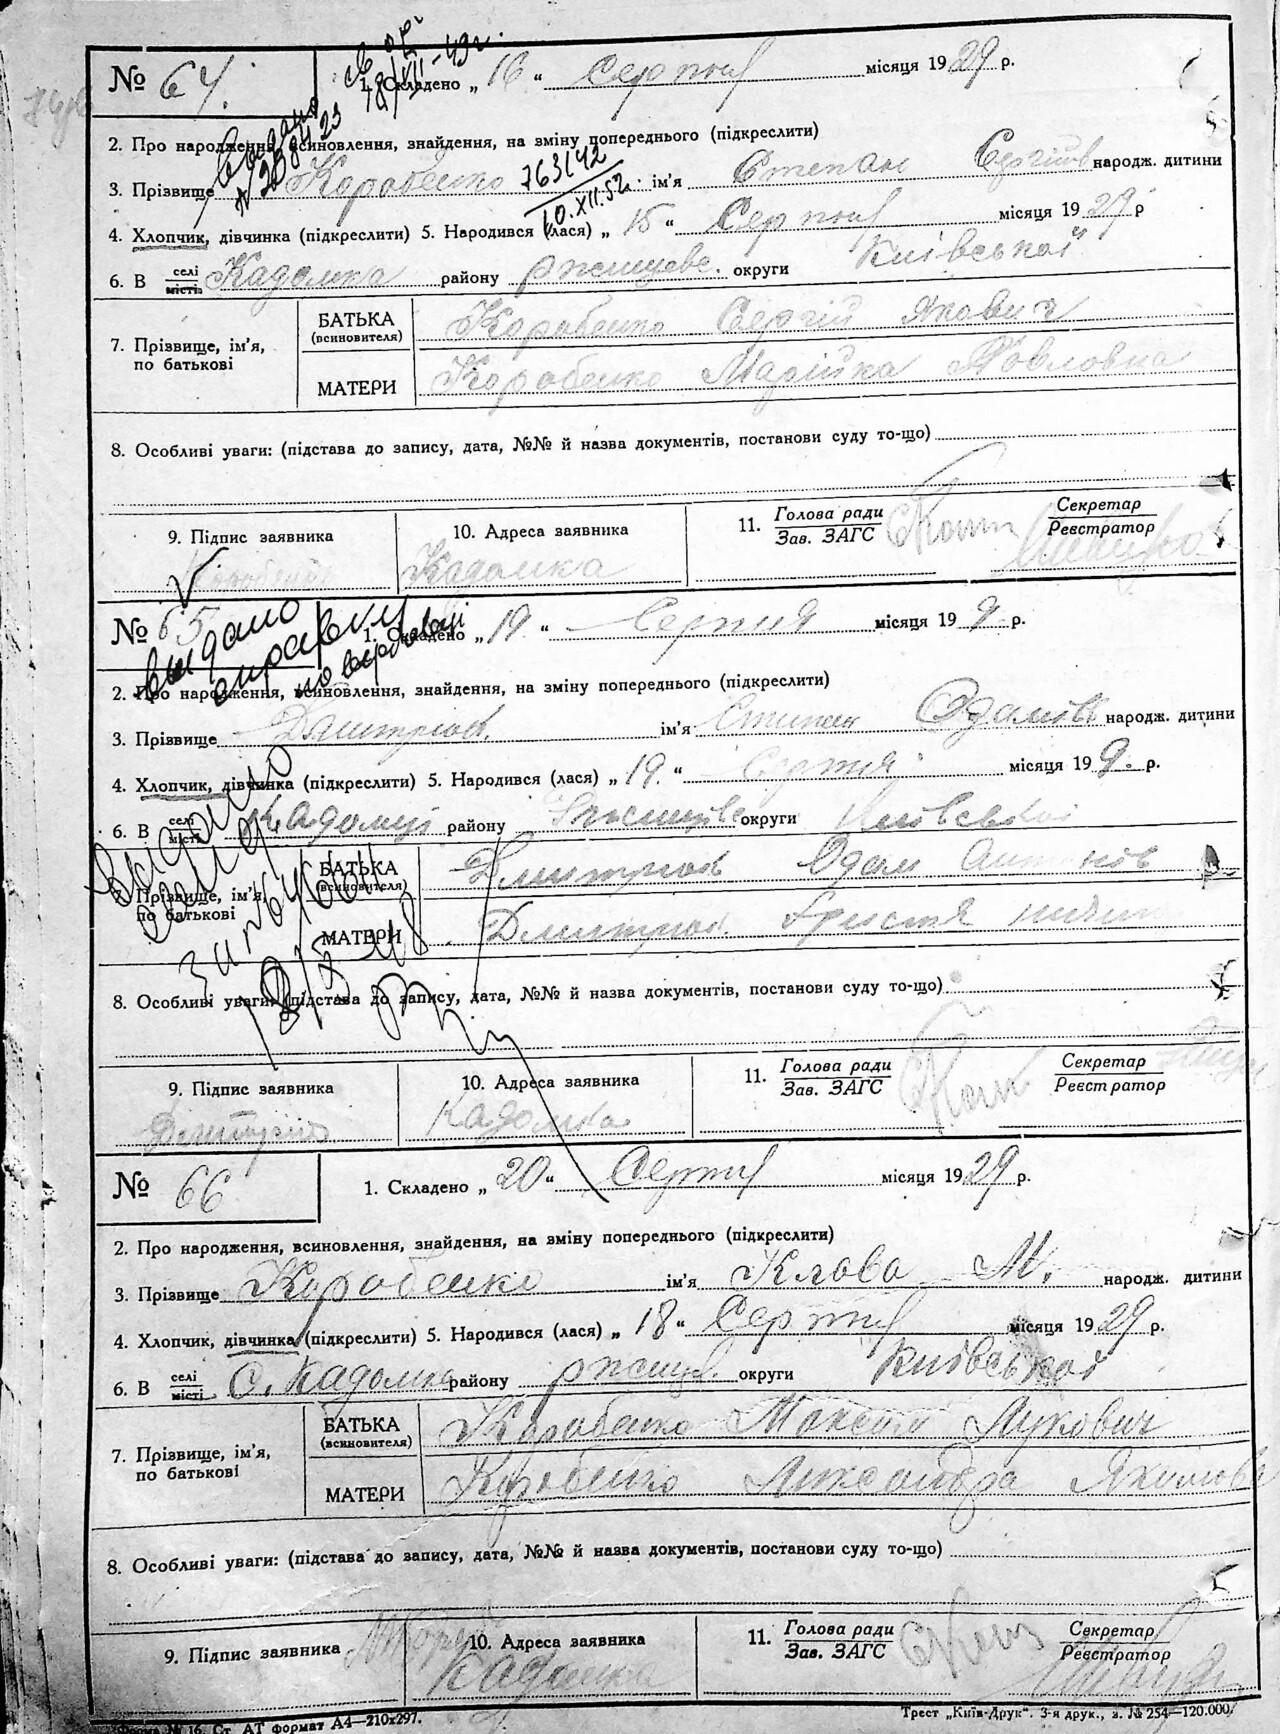 № 64. 1. Складено „ 16 “ Серпня місяця 1929 р.
св. ок 18/XII-49г.
Выдано № 238423
2. Про народження, всиновлення, знайдення, на зміну попереднього (підкреслити)
3. Прізвище Коробейко ім'я Степан Сергіїв народж. дитини
763142
10.XII.52г.
4. Хлопчик, дівчинка (підкреслити) 5. Народився (лася) „ 15 “ Серпня місяця 1929 р
6. В селі/місті Кадомка району ржищевс. округи Київської
7. Прізвище, ім'я, по батькові
БАТЬКА (всиновителя) Коробейко Сергій Якович
МАТЕРИ Коробейко Марійка Повловна
8. Особливі уваги: (підстава до запису, дата, №№ й назва документів, постанови суду то-що)
9. Підпис заявника Коробейко
10. Адреса заявника Кадомка
11. Голова ради / Зав. ЗАГС
Секретар / Реєстратор
№ 65 1. Складено „ 19 “ Серпня місяця 19 9. р.
выдано справку
2. Про народження, всиновлення, знайдення, на зміну попереднього (підкреслити)
3. Прізвище Дмитріов. ім'я Степан Одамовъ народж. дитини
4. Хлопчик, дівчинка (підкреслити) 5. Народився (лася) „ 19. “ Серпня місяця 19 9. р.
6. В селі/місті Кадомці району Ржищівс округи Київської
Выдано
за №
7. Прізвище, ім'я, по батькові
БАТЬКА (всиновителя) Дмитріов Одам Антонов
МАТЕРИ Дмитріов. Христя
8. Особливі уваги: (підстава до запису, дата, №№ й назва документів, постанови суду то-що)
9. Підпис заявника Дмитріов
10. Адреса заявника Кадомка
11. Голова ради / Зав. ЗАГС
Секретар / Реєстратор
№ 66 1. Складено „ 20 “ Серпня місяця 1929 р.
2. Про народження, всиновлення, знайдення, на зміну попереднього (підкреслити)
3. Прізвище Коробейко ім'я Клава М. народж. дитини
4. Хлопчик, дівчинка (підкреслити) 5. Народився (лася) „ 18 “ Серпня місяця 1929 р.
6. В селі/місті С. Кадомка району ржищ. округи Київської
7. Прізвище, ім'я, по батькові
БАТЬКА (всиновителя) Коробейко Максим Лукович
МАТЕРИ Коробейко Лександра Якимовн
8. Особливі уваги: (підстава до запису, дата, №№ й назва документів, постанови суду то-що)
9. Підпис заявника
10. Адреса заявника Кадомка
11. Голова ради / Зав. ЗАГС
Секретар / Реєстратор
Форма № 16. Ст. АТ формат А4—210х297.
Трест „Київ-Друк“. 3-я друк., з. № 254—120.000.